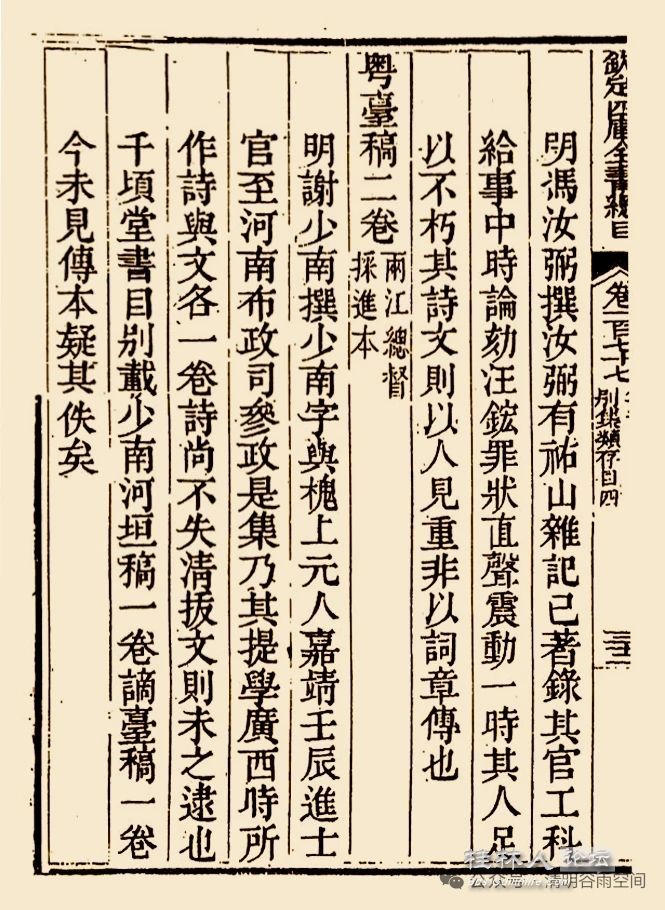 欽定四庫全書總目 卷一百七十七 別集類存目四
明馮汝弼撰汝弼有祐山雜記已著錄其官工科
給事中時論劾汪鋐罪狀直聲震動一時其人足
以不朽其詩文則以人見重非以詞章傳也
粵臺稿二卷 兩江總督採進本
明謝少南撰少南字與槐上元人嘉靖壬辰進士
官至河南布政司參政是集乃其提學廣西時所
作詩與文各一卷詩尚不失清拔文則未之逮也
千頃堂書目別載少南河垣稿一卷謫臺稿一卷
今未見傳本疑其佚矣
桂林人论坛
公众号·清明谷雨空间